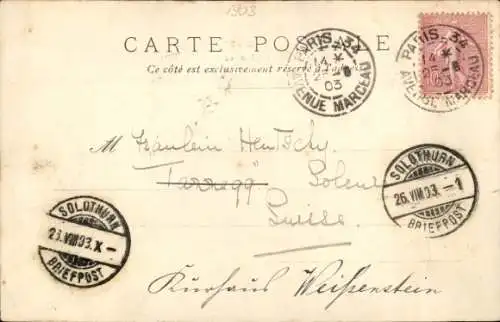 1903
CARTE POSTALE
Ce côté est exclusivement réservé à
PARIS. 34
14 *
25 -8
03
AVENUE MARCEAU
PARIS. 34
14 *
25 -8
03
AVENUE MARCEAU
M Fräulein Hentschy
Soleure
Suisse
Kurhaus Weißenstein
SOLOTHURN
26.VIII.03.-1
BRIEFPOST
SOLOTHURN
26.VIII.03.X-
BRIEFPOST